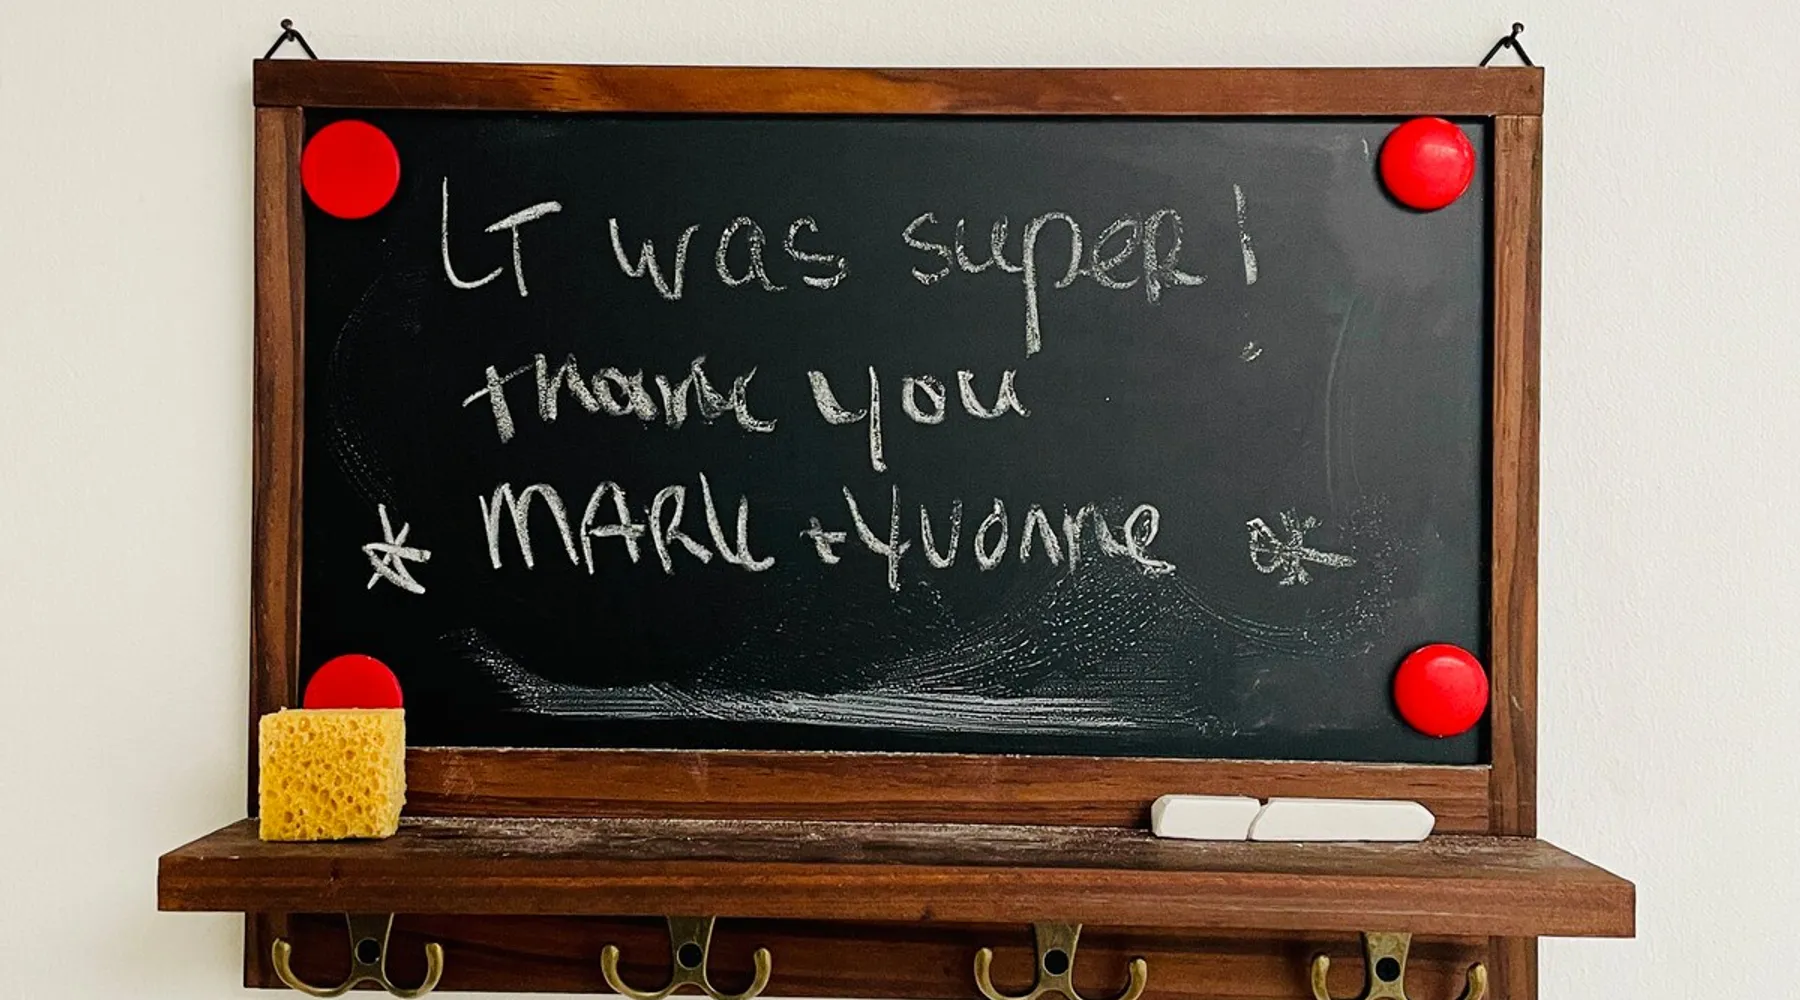 IT was super!
thank you
* MARK + Yvonne *